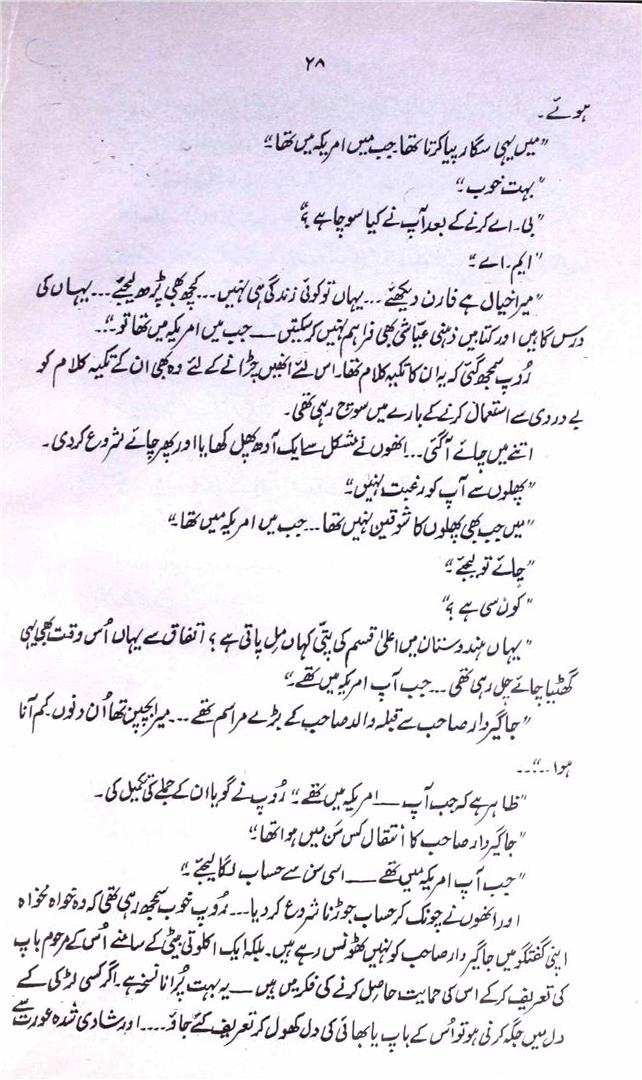 ۲۸
ہوئے۔
"میں یہی سگار پیا کرتا تھا جب میں امریکہ میں تھا۔"
"بہت خوب۔"
"بی۔ اے کرنے کے بعد آپ نے کیا سوچا ہے؟"
"ایم۔ اے۔"
"میرا خیال ہے فارن دیکھئے... یہاں تو کوئی زندگی ہی نہیں... کچھ بھی پڑھ لیجئے... یہاں کی
درس گاہیں اور کتابیں ذہنی عیّاشی بھی فراہم نہیں کر سکتیں ــــ جب میں امریکہ میں تھا تو۔"۔
رُوپ سمجھ گئی کہ یہ ان کا تکیہ کلام تھا۔ اس لئے انھیں چڑانے کے لئے وہ بھی ان کے تکیہ کلام کو
بے دردی سے استعمال کرنے کے بارے میں سوچ رہی تھی۔
اتنے میں چائے آ گئی... انھوں نے مشکل سے ایک آدھ پھل کھایا اور پھر چائے شروع کر دی۔
"پھلوں سے آپ کو رغبت نہیں۔"
"میں جب بھی پھلوں کا شوقین نہیں تھا... جب میں امریکہ میں تھا۔"
"چائے تو لیجئے۔"
"کون سی ہے؟"
"یہاں ہندوستان میں اعلیٰ قسم کی پتّی کہاں مل پاتی ہے؟ اتفاق سے یہاں اُس وقت بھی یہی
گھٹیا چائے چل رہی تھی... جب آپ امریکہ میں تھے۔"
"جاگیردار صاحب سے قبلہ والد صاحب کے بڑے مراسم تھے... میرا بچپن تھا اُن دنوں کم آنا
ہوا..."...
"ظاہر ہے کہ جب آپ ــــ امریکہ میں تھے۔" رُوپ نے گویا ان کے جملے کی تکمیل کی۔
"جاگیردار صاحب کا انتقال کس سَن میں ہوا تھا۔"
"جب آپ امریکہ میں تھے ــــ اسی سن سے حساب لگا لیجئے۔"
اور انھوں نے چونک کر حساب جوڑنا شروع کر دیا... رُوپ خوب سمجھ رہی تھی کہ وہ خواہ مخواہ
اپنی گفتگو میں جاگیردار صاحب کو نہیں ٹھونس رہے ہیں۔ بلکہ ایک اکلوتی بیٹی کے سامنے اُس کے مرحوم باپ
کی تعریف کر کے اس کی حمایت حاصل کرنے کی فکر میں ہیں ــــ یہ بہت پُرانا نسخہ ہے۔ اگر کسی لڑکی کے
دل میں جگہ کرنی ہو تو اُس کے باپ یا بھائی کی دل کھول کر تعریف کئے جاؤ.... اور شادی شدہ عورت سے